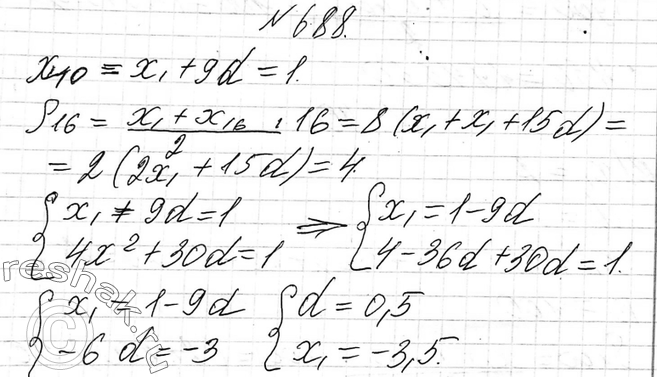 №688.
x₁₀ = x₁ + 9d = 1.
S₁₆ = (x₁ + x₁₆)/2 · 16 = 8(x₁ + x₁ + 15d) =
= 2(2x₁ + 15d) = 4.
{ x₁ + 9d = 1 ⇒ { x₁ = 1 - 9d
{ 4x² + 30d = 1 { 4 - 36d + 30d = 1.
{ x₁ = 1 - 9d { d = 0,5
{ -6d = -3 { x₁ = -3,5.
reshak.ru